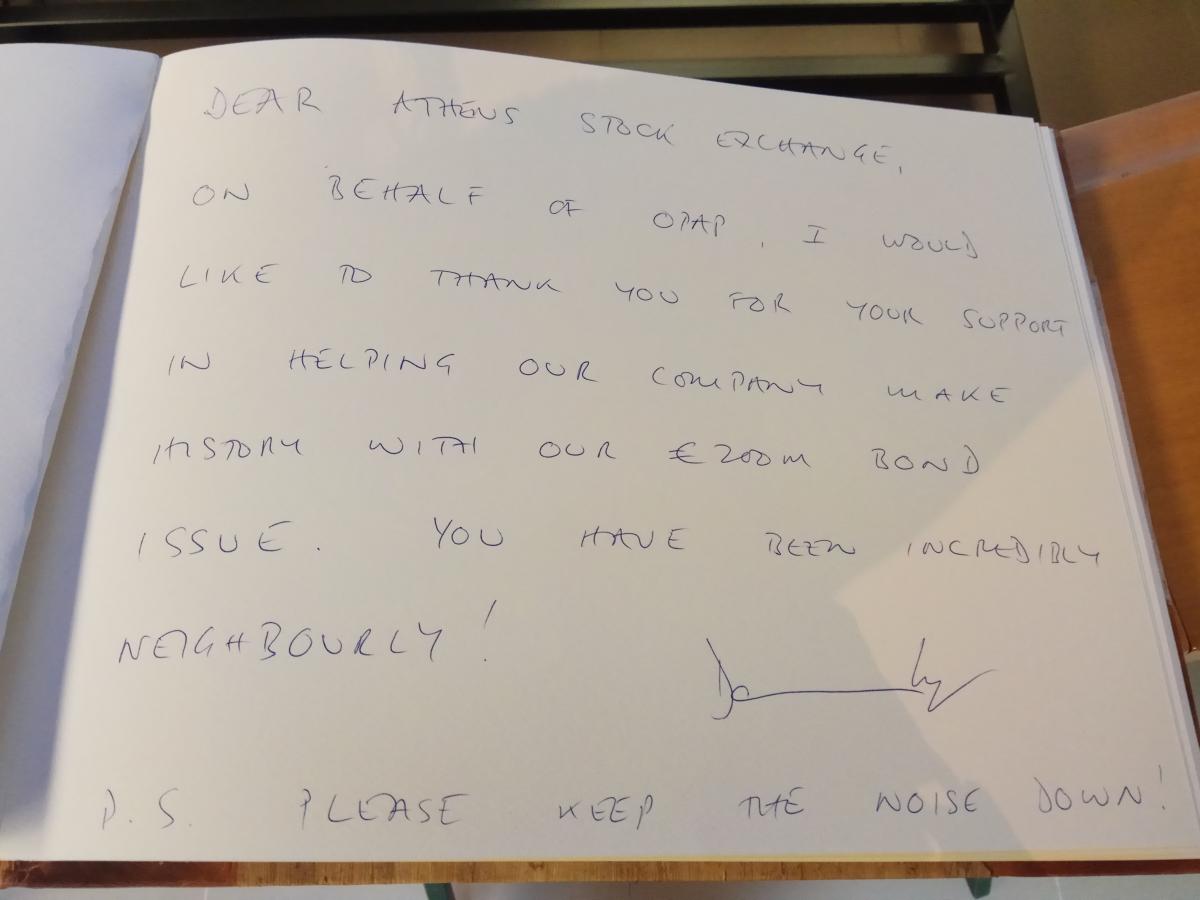 DEAR ATHENS STOCK EXCHANGE,
ON BEHALF OF OPAP, I WOULD
LIKE TO THANK YOU FOR YOUR SUPPORT
IN HELPING OUR COMPANY MAKE
HISTORY WITH OUR €200M BOND
ISSUE. YOU HAVE BEEN INCREDIBLY
NEIGHBOURLY!
P.S. PLEASE KEEP THE NOISE DOWN!